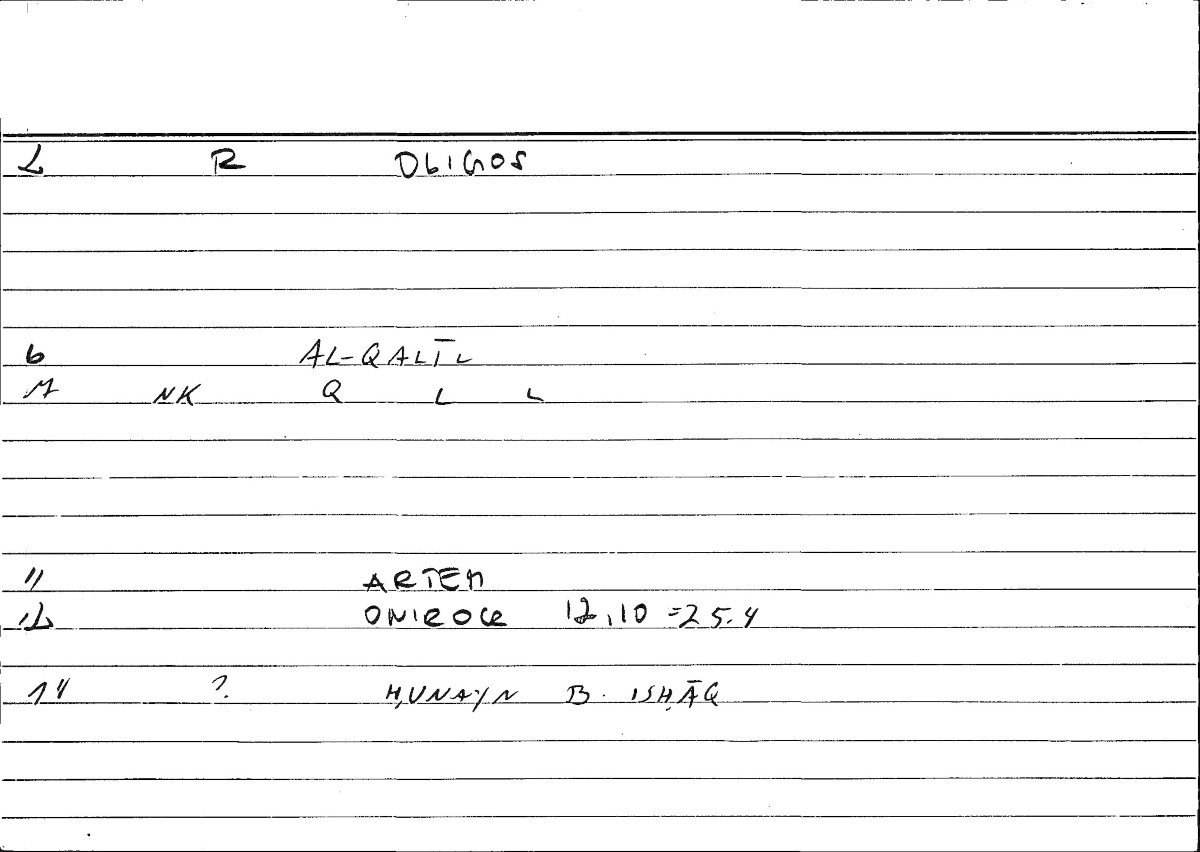 L R OLIGOS
6 AL-QALĪL
7 NK Q L L
11 ARTEM
12 ONIROCR 12,10 =25.4
14 ? ḤUNAYN B. ISḤĀQ